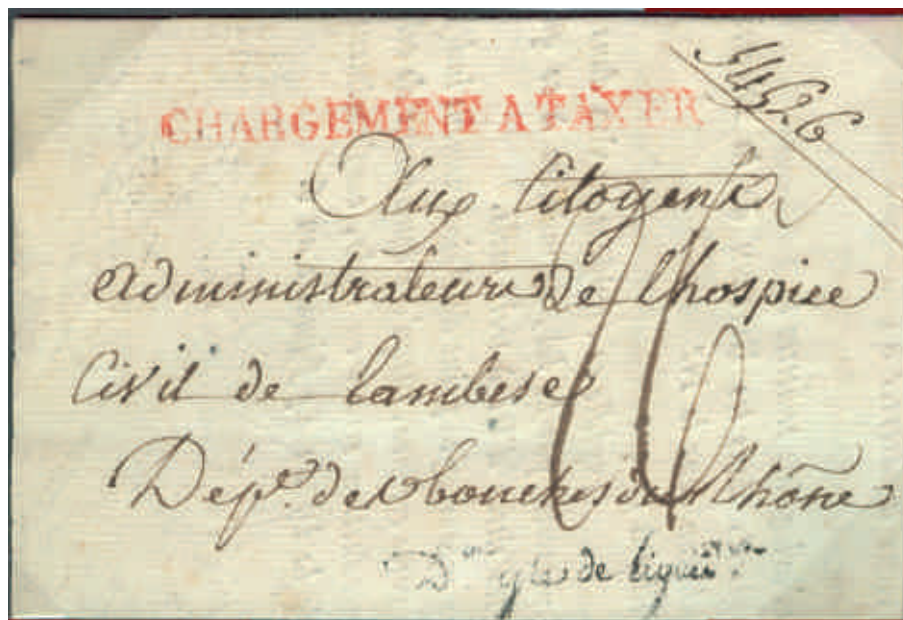 5426
CHARGEMENT A TAXER
Aux Citoyens
administrateurs de l'hospice
Civil de Lambesc
Dép.t des bouches du Rhône
de liquid